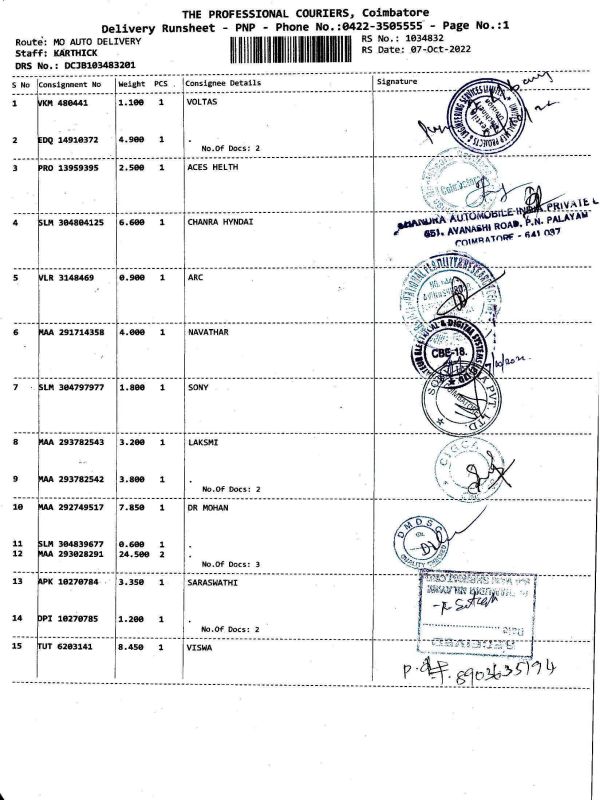 THE PROFESSIONAL COURIERS, Coimbatore
Delivery Runsheet - PNP - Phone No.:0422-3505555 - Page No.:1
Route: MO AUTO DELIVERY RS No.: 1034832
Staff: KARTHICK RS Date: 07-Oct-2022
DRS No.: DCJB103483201
S No Consignment No Weight PCS Consignee Details Signature
1 VKM 480441 1.100 1 VOLTAS
2 EDQ 14910372 4.900 1 .
No.Of Docs: 2
3 PRO 13959395 2.500 1 ACES HELTH
4 SLM 304804125 6.600 1 CHANRA HYNDAI
CHANDRA AUTOMOBILE INDIA PRIVATE L
651, AVANASHI ROAD, P.N. PALAYAM
COIMBATORE - 641 037
5 VLR 3148469 0.900 1 ARC
6 MAA 291714358 4.000 1 NAVATHAR
CBE-18.
7 SLM 304797977 1.800 1 SONY
PVT. LTD.
8 MAA 293782543 3.200 1 LAKSMI
9 MAA 293782542 3.800 1 .
No.Of Docs: 2
10 MAA 292749517 7.850 1 DR MOHAN
DMDSC
11 SLM 304839677 0.600 1 .
12 MAA 293028291 24.500 2 .
No.Of Docs: 3
13 APK 10270784 3.350 1 SARASWATHI
14 DPI 10270785 1.200 1 .
No.Of Docs: 2
RECEIVED
15 TUT 6203141 8.450 1 VISWA
8903635194